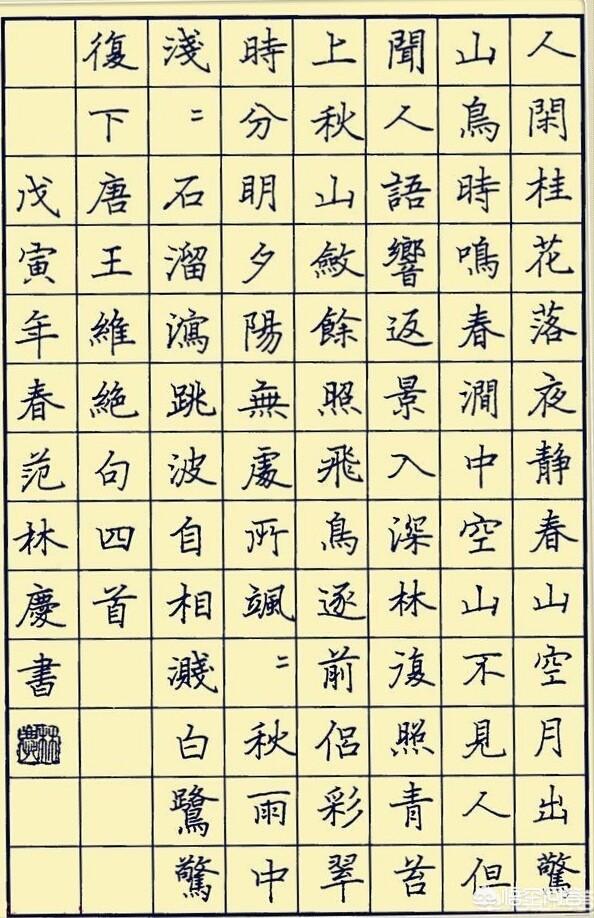 人閑桂花落夜靜春山空月出驚
山鳥時鳴春澗中空山不見人但
聞人語響返景入深林復照青苔
上秋山斂餘照飛鳥逐前侶彩翠
時分明夕陽無處所颯〻秋雨中
淺〻石溜瀉跳波自相濺白鷺驚
復下唐王維絕句四首
戊寅年春范林慶書